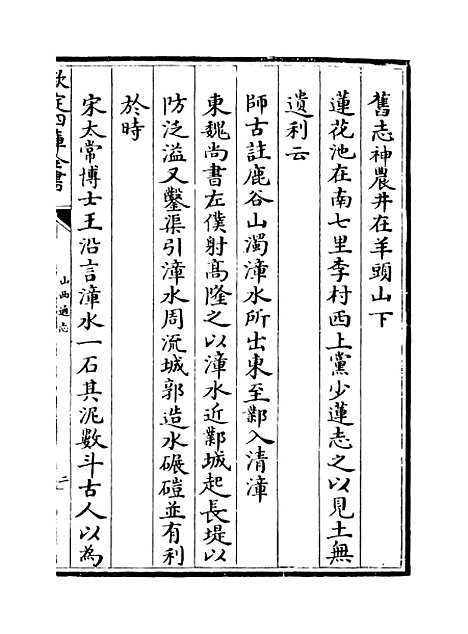 舊志神農井在羊頭山下
蓮花池在南七里李村西上黨少蓮志之以見土無
遺利云
師古註鹿谷山濁漳水所出東至鄴入清漳
東魏尚書左僕射高隆之以漳水近鄴城起長堤以
防泛溢又鑿渠引漳水周流城郭造水碾磑並有利
於時
宋太常博士王沿言漳水一石其泥數斗古人以為
欽定四庫全書
山西通志
二